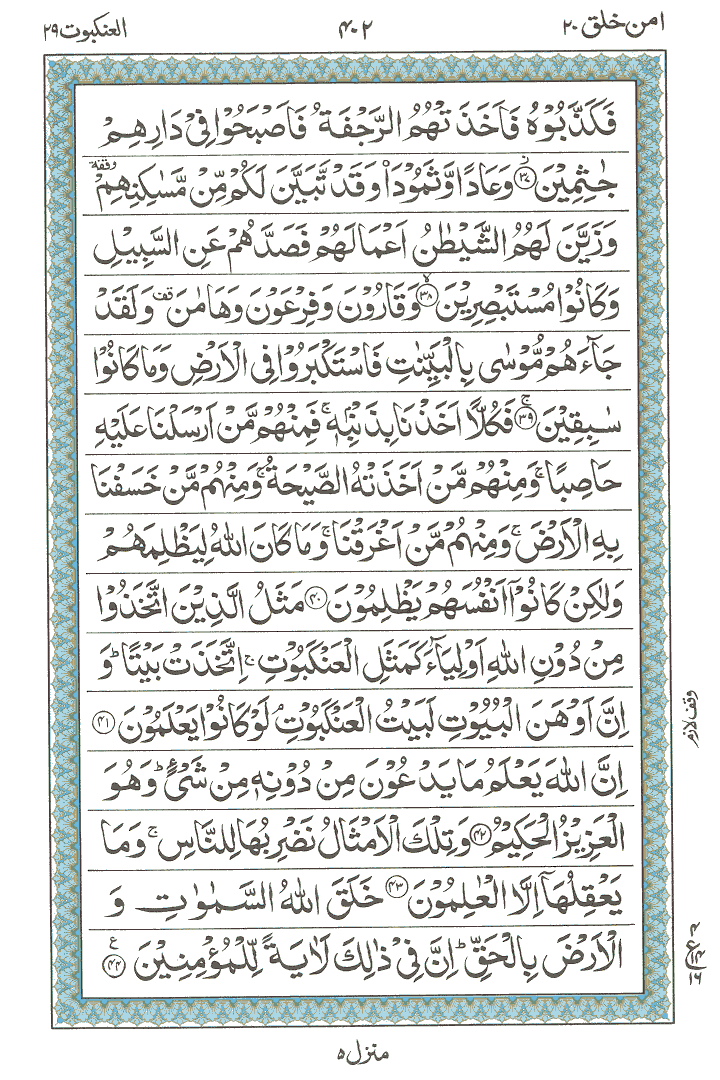 امن خلق ٢٠
٤٠٢
العنكبوت ٢٩
فَكَذَّبُوْهُ فَاَخَذَتْهُمُ الرَّجْفَةُ فَاَصْبَحُوْا فِىْ دَارِهِمْ
جٰثِمِيْنَ ﴿٣٧﴾ وَعَادًا وَّثَمُوْدَا۟ وَقَدْ تَّبَيَّنَ لَكُمْ مِّنْ مَّسٰكِنِهِمْ وقفة
وَزَيَّنَ لَهُمُ الشَّيْطٰنُ اَعْمَالَهُمْ فَصَدَّهُمْ عَنِ السَّبِيْلِ
وَكَانُوْا مُسْتَبْصِرِيْنَ ﴿٣٨﴾ۙ وَقَارُوْنَ وَفِرْعَوْنَ وَهَامٰنَ قف وَلَقَدْ
جَآءَهُمْ مُّوْسٰى بِالْبَيِّنٰتِ فَاسْتَكْبَرُوْا فِى الْاَرْضِ وَمَا كَانُوْا
سٰبِقِيْنَ ﴿٣٩﴾ۚ فَكُلًّا اَخَذْنَا بِذَنْۢبِهٖۚ فَمِنْهُمْ مَّنْ اَرْسَلْنَا عَلَيْهِ
حَاصِبًاۚ وَمِنْهُمْ مَّنْ اَخَذَتْهُ الصَّيْحَةُۚ وَمِنْهُمْ مَّنْ خَسَفْنَا
بِهِ الْاَرْضَۚ وَمِنْهُمْ مَّنْ اَغْرَقْنَاۚ وَمَا كَانَ اللّٰهُ لِيَظْلِمَهُمْ
وَلٰكِنْ كَانُوْۤا اَنْفُسَهُمْ يَظْلِمُوْنَ ﴿٤٠﴾ مَثَلُ الَّذِيْنَ اتَّخَذُوْا
مِنْ دُوْنِ اللّٰهِ اَوْلِيَآءَ كَمَثَلِ الْعَنْكَبُوْتِۚ اِتَّخَذَتْ بَيْتًاؕ وَ
اِنَّ اَوْهَنَ الْبُيُوْتِ لَبَيْتُ الْعَنْكَبُوْتِۘ لَوْ كَانُوْا يَعْلَمُوْنَ ﴿٤١﴾
وقف لازم
اِنَّ اللّٰهَ يَعْلَمُ مَا يَدْعُوْنَ مِنْ دُوْنِهٖ مِنْ شَىْءٍؕ وَهُوَ
الْعَزِيْزُ الْحَكِيْمُ ﴿٤٢﴾ وَتِلْكَ الْاَمْثَالُ نَضْرِبُهَا لِلنَّاسِۚ وَمَا
يَعْقِلُهَاۤ اِلَّا الْعٰلِمُوْنَ ﴿٤٣﴾ خَلَقَ اللّٰهُ السَّمٰوٰتِ وَ
الْاَرْضَ بِالْحَقِّؕ اِنَّ فِىْ ذٰلِكَ لَاٰيَةً لِّلْمُؤْمِنِيْنَ ﴿٤٤﴾ ع
٤
ع ١٤
١٦
منزل ٥